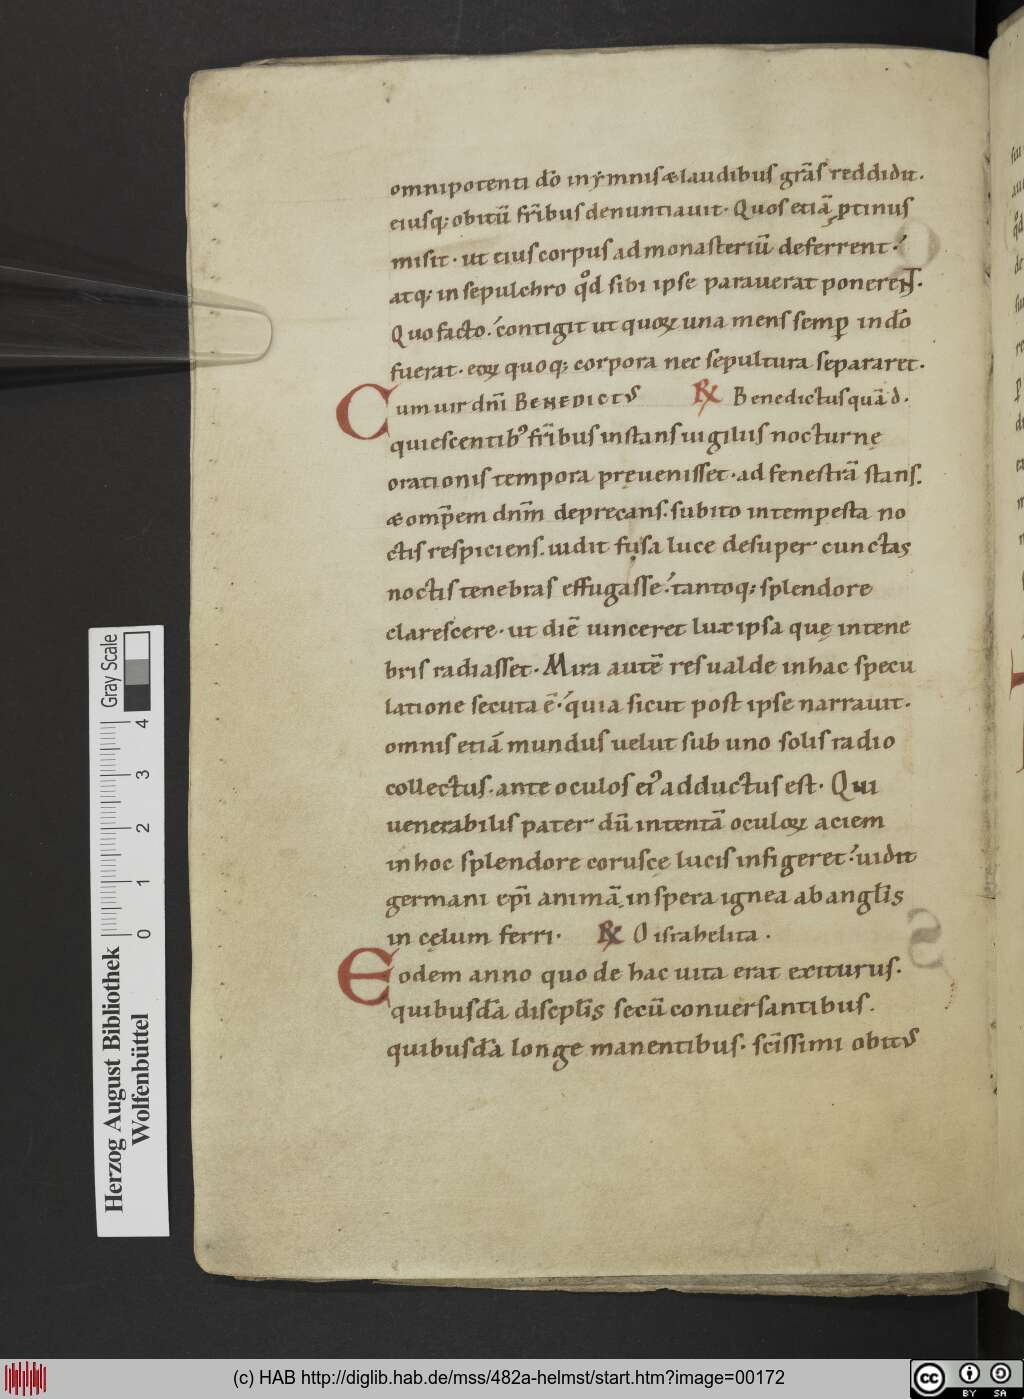 omnipotenti dō in ẏmnis & laudibus gr̄as reddidit.
eiusq; obitū fr̄ibus denuntiauit. Quos etiā ꝓtinus
misit. ut eius corpus ad monasteriū deferrent.
atq; in sepulchro qͦd sibi ipse parauerat ponereNT.
Quo facto. contigit ut quoꝝ una mens semꝑ in dō
fuerat. eoꝝ quoq; corpora nec sepultura separaret.
Cum uir dn̄i BENEDICTUS ℞ Benedictus quā d.
quiescentibꝰ fr̄ibus instans uigiliis nocturnę
orationis tempora pręuenisset. ad fenestrā stans.
& omp̄em dn̄m deprecans. subito intempesta no
ctis respiciens. uidit fusa luce desuper cunctas
noctis tenebras effugasse. tantoq; splendore
clarescere. ut diē uinceret lux ipsa quę intene
bris radiasset. Mira autē res ualde in hac specu
latione secuta ē. quia sicut post ipse narrauit.
omnis etiā mundus uelut sub uno solis radio
collectus. ante oculos eiꝰ adductus est. Qui
uenerabilis pater dū intentā oculoꝝ aciem
in hoc splendore coruscę lucis infigeret. uidit
germani ep̄i animā in spera ignea ab angl̄is
in cęlum ferri. ℞ O israhelita.
Eodem anno quo de hac uita erat exiturus.
quibusdā discpl̄is secū conuersantibus.
quibusdā longe manentibus. sc̄issimi obitus
Gray Scale
0 1 2 3 4
Herzog August Bibliothek
Wolfenbüttel
(c) HAB http://diglib.hab.de/mss/482a-helmst/start.htm?image=00172
cc BY SA